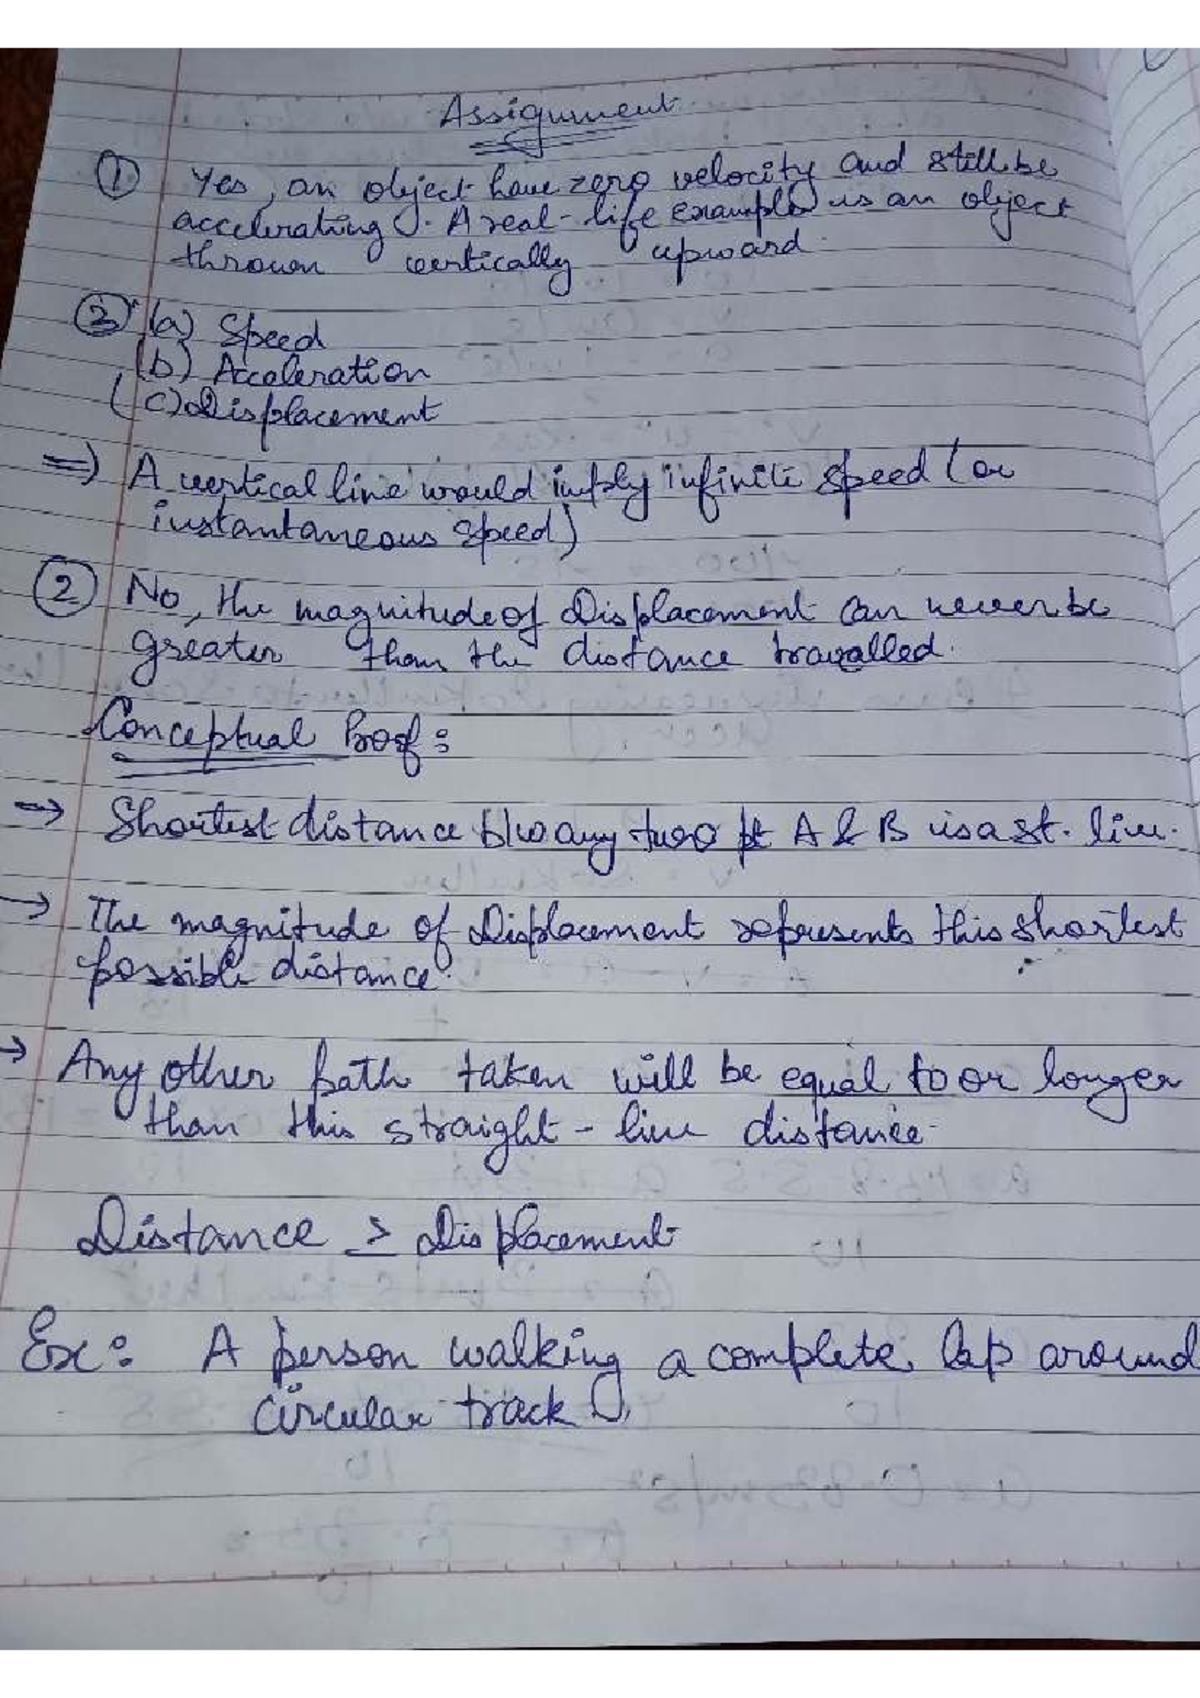 Assignment
① Yes, an object have zero velocity and still be
accelerating. A real-life example is an object
thrown vertically upward.
③ (a) Speed
(b) Acceleration
(c) Displacement
=) A vertical line would imply infinite speed (or
instantaneous speed)
② No, the magnitude of Displacement can never be
greater than the distance travelled.
Conceptual Proof:
→ Shortest distance b/w any two pt A & B is a st. line.
→ The magnitude of Displacement represents this shortest
possible distance.
→ Any other path taken will be equal to or longer
than this straight-line distance.
Distance ≥ Displacement
Ex: A person walking a complete lap around
circular track.